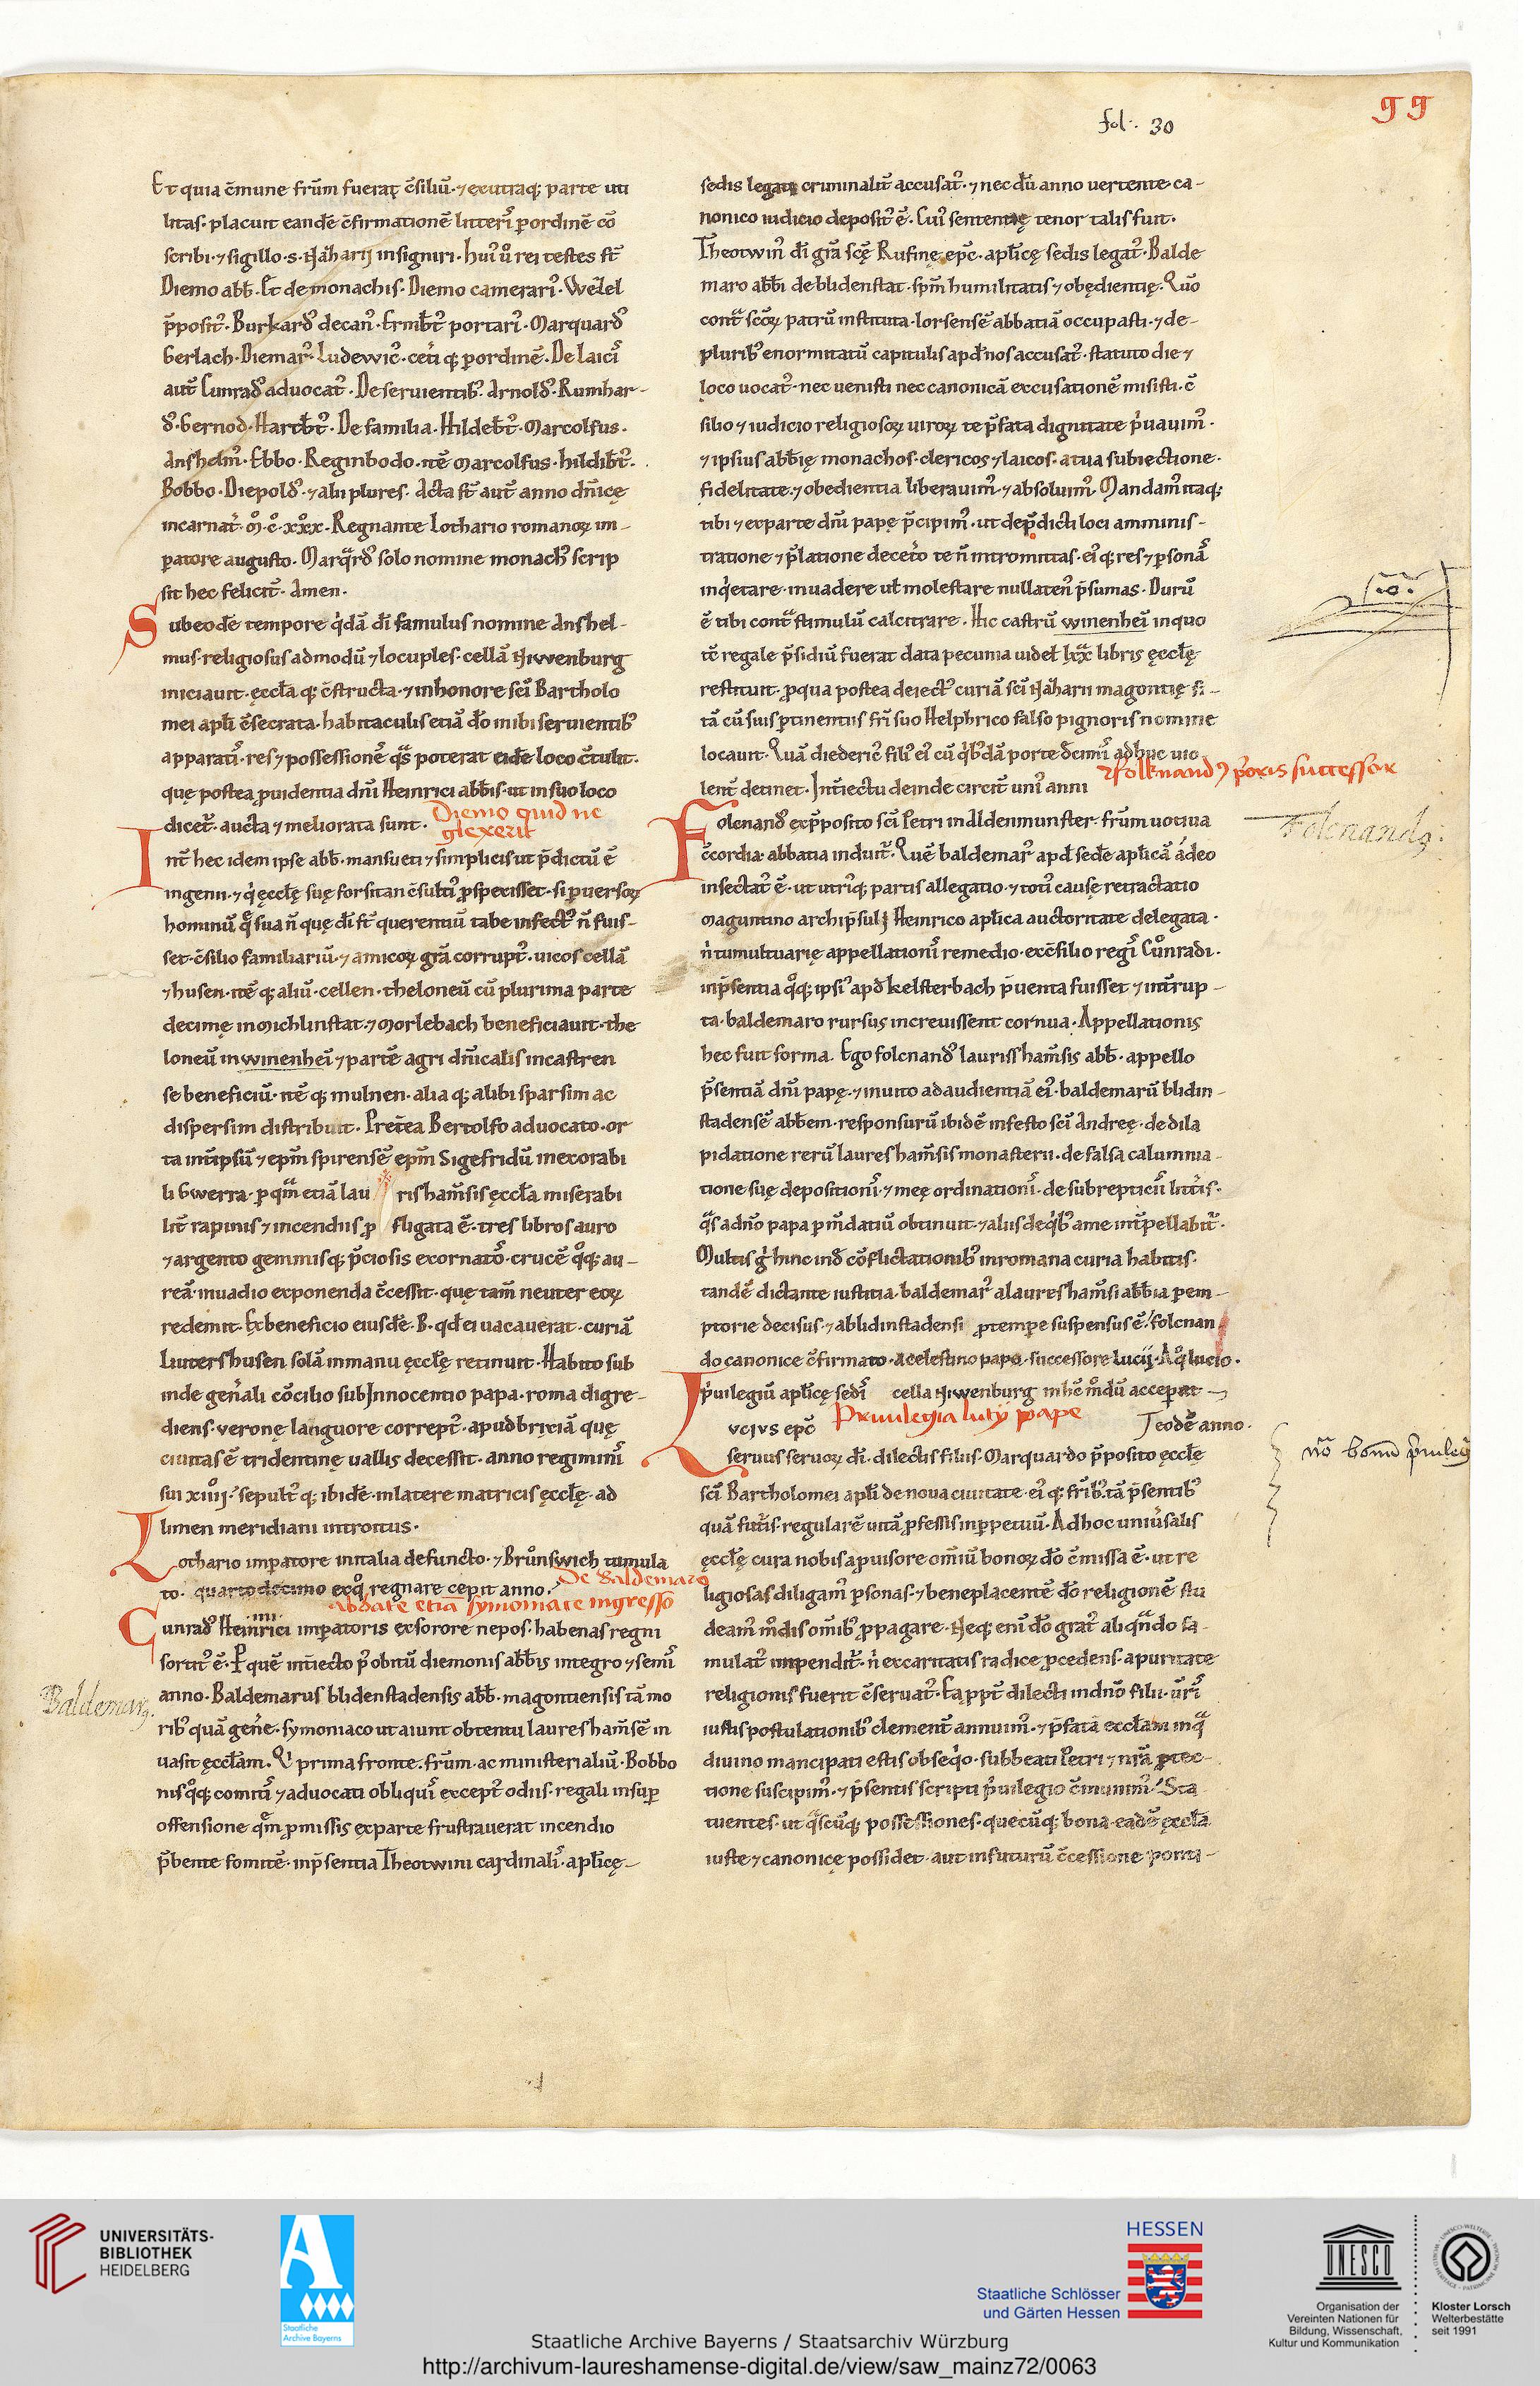 fol. 30
99
Et quia c̄mune frm̄ fuerat c̄siliū. ⁊ exutraq; parte uti
litas. placuit eandē c̄firmationē litteriˢ p ordinē cō
scribi. ⁊ sigillo .s. Nazharij insigniri. huiꝰ ů rei testes st̄
Diemo abb̄. Et de monachis. Diemo camerariꝰ. Wecel
p̄positꝰ. Burkardꝰ decanꝰ. Ermb̄tꝰ portariꝰ. Marquardꝰ
Gerlach. Diemarꝰ. Ludewicꝰ. ceti q; p ordinē. De laiciˢ
aut̄ Cunradꝰ aduocatꝰ. De seruientibꝰ. Arnoldꝰ. Rumhar-
dꝰ. Gernod. Hartb̄tꝰ. De familia. Hildeb̄tꝰ. Marcolfus.
Anshelmꝰ. Ebbo. Reginbodo. itē Marcolfus. hildib̄tꝰ.
Bobbo. Diepoldꝰ. ⁊ alii plures. Acta st̄ aut̄ anno dn̄icę
incarnat. m̊. c̊. xxx̊. Regnante Lothario romanoꝝ im-
patore augusto. Marq̄rdꝰ solo nomine monachꝰ scrip
sit hec felicit̄. Amen.
Sub eodē tempore q̇dā di famulus nomine Anshel-
mus. religiosus admodū ⁊ locuples. cellā Niwenburg
iniciauit. ęccła q; c̄structa. ⁊ in honore sci Bartholo
mei apli c̄secrata. habitaculis etiā do inibi seruientibꝰ
apparatiˢ. res ⁊ possessionēˢ q̄s poterat eidē loco c̄tulit.
quę postea puidentia dn̄i Heinrici abb̄is. ut in suo loco
dicet̄. aucta ⁊ meliorata sunt.
Diemo quid ne
glexerit
Int̄ hec idem ipse abb̄. mansueti ⁊ simplicis ut p̄dictū ē
ingenii. ⁊ q̇ ęccłę suę forsitan c̄sultiꝰ pspexisset. si puersoꝝ
hominū q̄ sua n̄ quę di st̄ querentiū tabe infectꝰ n̄ fuis-
set. c̄silio familiariū. ⁊ amicoꝝ grā corruptꝰ. uicos cellā
⁊ husen. itē q; aliū. cellen. theloneū cū plurima parte
decimę in Michlinstat. ⁊ Morlebach beneficiauit. the
loneū in winenheī ⁊ partē agri dn̄icalis in castren
se beneficiū. itē q; mulnen. alia q; alibi sparsim ac
dispersim distribuit. Pret̄ea Bertolfo aduocato. or
ta int̄ ipsū ⁊ epm̄ spirensē epm̄ Sigefridū inexorabi
li Gwerra. p qm̄ etiā lau rishāmsis ęccła miserabi
lit̄ rapinis ⁊ incendiis p fligata ē. tres libros auro
⁊ argento gemmisq; p̄ciosis exornatoˢ. crucē q̊q; au-
reā. inuadio exponenda c̄cessit. quę tam̄ neuter eoꝝ
redemit. Ex beneficio eiusdē. B. qd ei uacauerat. curiā
Liutershusen solā in manu ęccłę retinuit. Habito sub
inde gen̄ali cōcilio sub Innocentio papa. roma digre-
diens. veronę languore correptꝰ. apud brixiā quę
ciuitas ē tridentinę uallis decessit. anno regiminiˢ
sui xiiij. sepultꝰ q; ibidē. in latere matricis ęccłę. ad
limen meridiani introitus.
Lothario impatore in italia defuncto. ⁊ Brůnswich tumula
to. quarto decimo exq̊ regnare cepit anno.
De Baldemaro
abbate etiā symoniace ingresso
Cunradꝰ Heinrici iiii impatoris ex sorore nepos. habenas regni
sortitꝰ ē. P quē int̄iecto p̊ obitū diemonis abb̄is integro ⁊ semiˢ
anno. Baldemarus blidenstadensis abb̄. magontiensis tā mo
ribꝰ quā gen̄e. symoniaco ut aiunt obtentu lauresham̄sē in
uasit ęccłam. Qi prima fronte. frm̄. ac ministerialiū. Bobbo
nis q̊q; comitiˢ ⁊ aduocati obliquiˢ exceptꝰ odiis. regali insup
offensione qm̄ pmissis exparte frustrauerat incendio
p̄bente fomitē. in p̄sentia Theotwini cardinaliˢ. aplicę
Baldemarꝰ.
sedis legati criminalit̄ accusatꝰ. ⁊ nec dū anno uertente ca-
nonico iudicio depositꝰ ē. Cuiꝰ sententię tenor talis fuit.
Theotwinꝰ di grā scę Rufinę epc̄. aplicę sedis legatꝰ. Balde
maro abb̄i de blidenstat. spm̄ humilitatis ⁊ obędientię. Quō
cont̄ scoꝝ patrū instituta. lorsensē abbatiā occupasti. ⁊ de-
pluribꝰ enormitatū capitulis apd nos accusatꝰ. statuto die ⁊
loco uocatꝰ. nec uenisti nec canonicā excusationē misisti. c̄
silio ⁊ iudicio religiosoꝝ uiroꝝ te p̄fata dignitate p̊uauimꝰ.
⁊ ipsius abb̄ię monachos. clericos ⁊ laicos. a tua subiectione.
fidelitate. ⁊ obedientia liberauimꝰ. ⁊ absoluimꝰ. Mandamꝰ itaq;
tibi ⁊ exparte dn̄i papę p̄cipimꝰ. ut de p̄dicti loci amminis-
tratione ⁊ p̄latione decet̄o te n̄ intromittas. eiꝰ q; res ⁊ psonāˢ
inq̇etare. inuadere ut molestare nullatenꝰ p̄sumas. Durū
ē tibi cont̄ stimulū calcitrare. Hic castrū winenheī in quo
tc̄ regale p̄sidiū fuerat data pecunia uidel lxx libris ęccłę
restituit. pqua postea deiectꝰ curiā sci Nazharii magontię si-
tā cū suis ptinentiis fri suo Helphrico falso pignoris nomine
locauit. Quā diedericꝰ filiꝰ eiꝰ cū q̇bꝰdā porte decimiˢ adhuc uio
lent̄ detinet. Int̄iectu deinde circit̄ uniꝰ anni
Folknandꝰ p̊oris successor
Folcnandꝰ ex p̄posito sci Petri in Aldenmunster. frm̄ uotiua
c̄cordia. abbatia induit̄. Quē baldemarꝰ apd sedē aplicā ádeo
insectatꝰ ē. ut utriq; partis allegatio. ⁊ totiꝰ causę retractatio
maguntino archip̄sulj Heinrico aplica auctoritate delegata.
n̊ tumultuarię appellationiˢ remedio. ex c̄silio regiˢ Cůnradi.
in p̄sentia q̊q; ipsiꝰ apd kelsterbach p̄uenta fuisset ⁊ int̄rup-
ta. baldemaro rursus increuissent cornua. Appellationis
hec fuit forma. Ego folcnandꝰ laurissham̄sis abb̄. appello
p̄sentiā dn̄i papę. ⁊ inuito ad audientiā eiꝰ. baldemarū blidin-
stadensē abb̄em. responsurū ibidē in festo sci Andreę. de dila
pidatione rerū lauresham̄sis monasterii. de falsa calumnia-
tione suę depositioniˢ. ⁊ meę ordinationiˢ. de subrepticiiˢ litt̄is.
q̄s a dn̄o papa p m̄datiū obtinuit. ⁊ aliis de q̇bꝰ a me int̄pellabit̄.
Multis g̊ hinc ind cōflictationibꝰ in romana curia habitis.
tandē dictante iustitia. baldemarꝰ a lauresham̄si abb̄ia pem-
ptorie decisus. ⁊ a blidinstadensi ptempe suspensus ē. folcnan
do canonice c̄firmato. a celestino papa. successore Lucij. A q̊ lucio.
p̊uilegiū aplicę sediˢ cella Niwenburg in hc̄ m̊dū accepat
Privilegia lutij pape
Eodē anno.
Lucius epc̄
seruus seruoꝝ di. dilectis filiis. Marquardo p̄posito ęccłę
sci Bartholomei apli de noua ciuitate. eiꝰ q; fribꝰ. tā p̄sentibꝰ
quā futuris. regularē uitā pfessis inppetuū. Ad hoc uniu̇salis
ęccłę cura nobis a puisore omiū bonoꝝ do c̄missa ē. ut re
ligiosas diligamꝰ psonas. ⁊ beneplacentē do religionē stu
deamꝰ m̊dis omibꝰ ppagare. Neq; eni do gratꝰ aliqn̄do fa-
mulatꝰ impendit̄. n̊ ex caritatis radice pcedens. a puritate
religionis fuerit c̄seruatꝰ. Ea ppt̄ dilecti in dn̄o filii. uriˢ
iustis postulationibꝰ clement̄ annuimꝰ. ⁊ p̄fatā ęccłam in q̄
diuino mancipati estis obseq̊o. sub beati Petri ⁊ nrā ptec-
tione suscipimꝰ. ⁊ p̄sentis scripti p̊uilegio c̄munimꝰ. Sta
tuentes. ut q̄scūq; possessiones. quecūq; bona. eadē ęccła
iuste ⁊ canonicę possidet. aut in futurū c̄cessione ponti-
Folcnandꝰ.
UNIVERSITÄTS-
BIBLIOTHEK
HEIDELBERG
Staatliche
Archive Bayerns
HESSEN
Staatliche Schlösser
und Gärten Hessen
UNESCO
Organisation der
Vereinten Nationen für
Bildung, Wissenschaft,
Kultur und Kommunikation
Kloster Lorsch
Welterbestätte
seit 1991
Staatliche Archive Bayerns / Staatsarchiv Würzburg
http://archivum-laureshamense-digital.de/view/saw_mainz72/0063